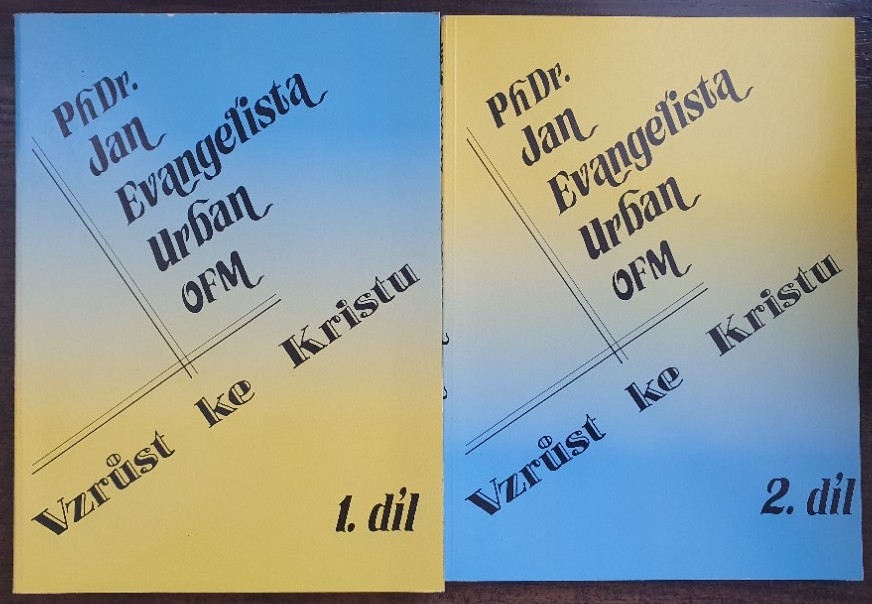 PhDr.
Jan
Evangelista
Urban
OFM
Vzrůst ke Kristu
1. díl
PhDr.
Jan
Evangelista
Urban
OFM
Vzrůst ke Kristu
2. díl